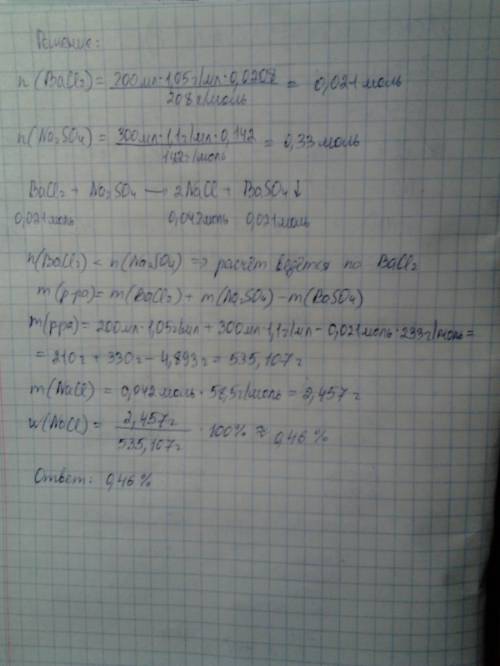 Решение:
n(BaCl₂) = 200мл·1,05г/мл·0,0208 / 208г/моль = 0,021 моль
n(Na₂SO₄) = 300мл·1,1г/мл·0,142 / 142г/моль = 0,33 моль
BaCl₂ + Na₂SO₄ → 2NaCl + BaSO₄↓
0,021моль 0,042моль 0,021моль
n(BaCl₂) < n(Na₂SO₄) ⇒ расчёт ведётся по BaCl₂
m(р-ра) = m(BaCl₂) + m(Na₂SO₄) - m(BaSO₄)
m(р-ра) = 200мл·1,05г/мл + 300мл·1,1г/мл - 0,021моль·233г/моль =
= 210г + 330г - 4,893г = 535,107г
m(NaCl) = 0,042моль · 58,5г/моль = 2,457г
w(NaCl) = 2,457г / 535,107г · 100% ≈ 0,46%
Ответ: 0,46%